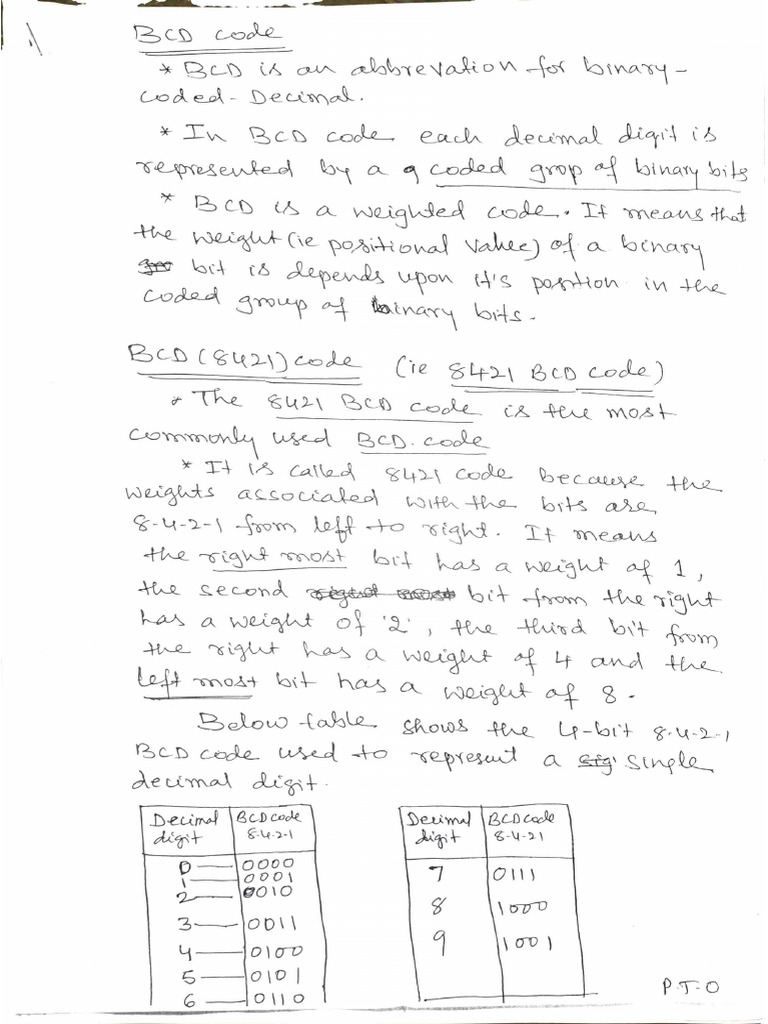 BCD code
* BCD is an abbrevation for binary-
coded-Decimal.
* In BCD code each decimal digit is
represented by a g coded grop of binary bits
* BCD is a weighted code. It means that
the weight (ie positional value) of a binary
bit is depends upon it's position in the
coded group of binary bits.
BCD (8421) code (ie 8421 BCD code)
* The 8421 BCD code is the most
commonly used BCD code
* It is called 8421 code because the
weights associated with the bits are
8-4-2-1 from left to right. It means
the right most bit has a weight of 1,
the second right most bit from the right
has a weight of '2', the third bit from
the right has a weight of 4 and the
left most bit has a weight of 8.
Below table shows the 4-bit 8-4-2-1
BCD code used to represent a sig single
decimal digit.
Decimal digit BCD code 8-4-2-1
0 0000
1 0001
2 0010
3 0011
4 0100
5 0101
6 0110
Decimal digit BCD code 8-4-21
7 0111
8 1000
9 1001
P.T-O